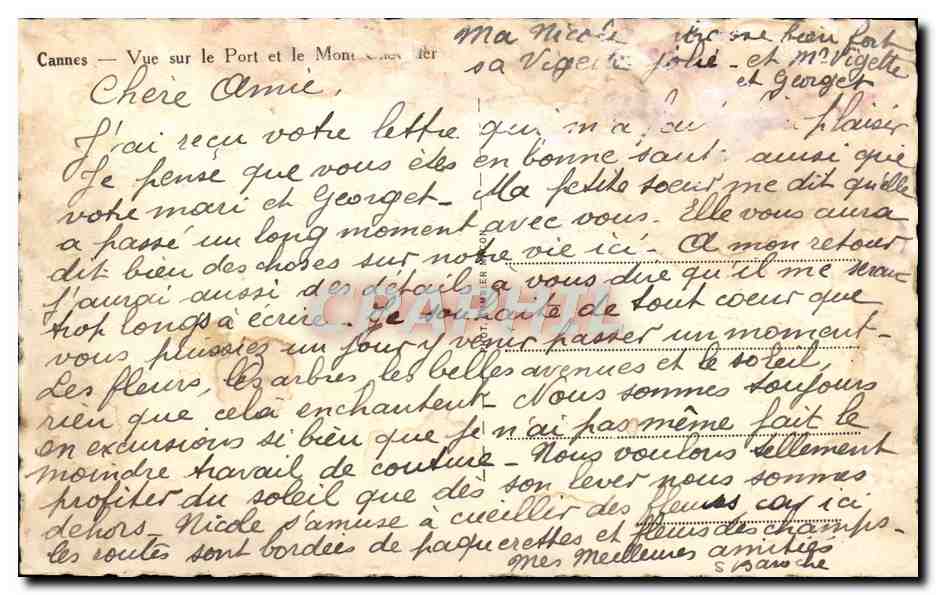 Cannes — Vue sur le Port et le Mont Chevalier
Ma Nicole bien fort
sa Vigette jolie - et Mr Vigette
et Georget
Chère Amie,
J'ai reçu votre lettre qui m'a plaisir
Je pense que vous êtes en bonne santé ainsi que
votre mari et Georget - Ma petite soeur me dit qu'elle
a passé un long moment avec vous. Elle vous aura
dit bien des choses sur notre vie ici - A mon retour
J'aurai aussi des détails à vous dire qu'il me serait
trop longs à écrire - Je souhaite de tout coeur que
vous puissiez un jour y venir passer un moment -
Les fleurs, les arbres, les belles avenues et le soleil,
rien que celà enchantent - Nous sommes toujours
en excursions si bien que je n'ai pas même fait le
moindre travail de couture - Nous voulons tellement
profiter du soleil que dès son lever nous sommes
dehors - Nicole s'amuse à cueillir des fleurs car ici
les routes sont bordées de paquerettes et fleurs des champs -
Mes Meilleures amitiés
S Baroche
CRAPHIL